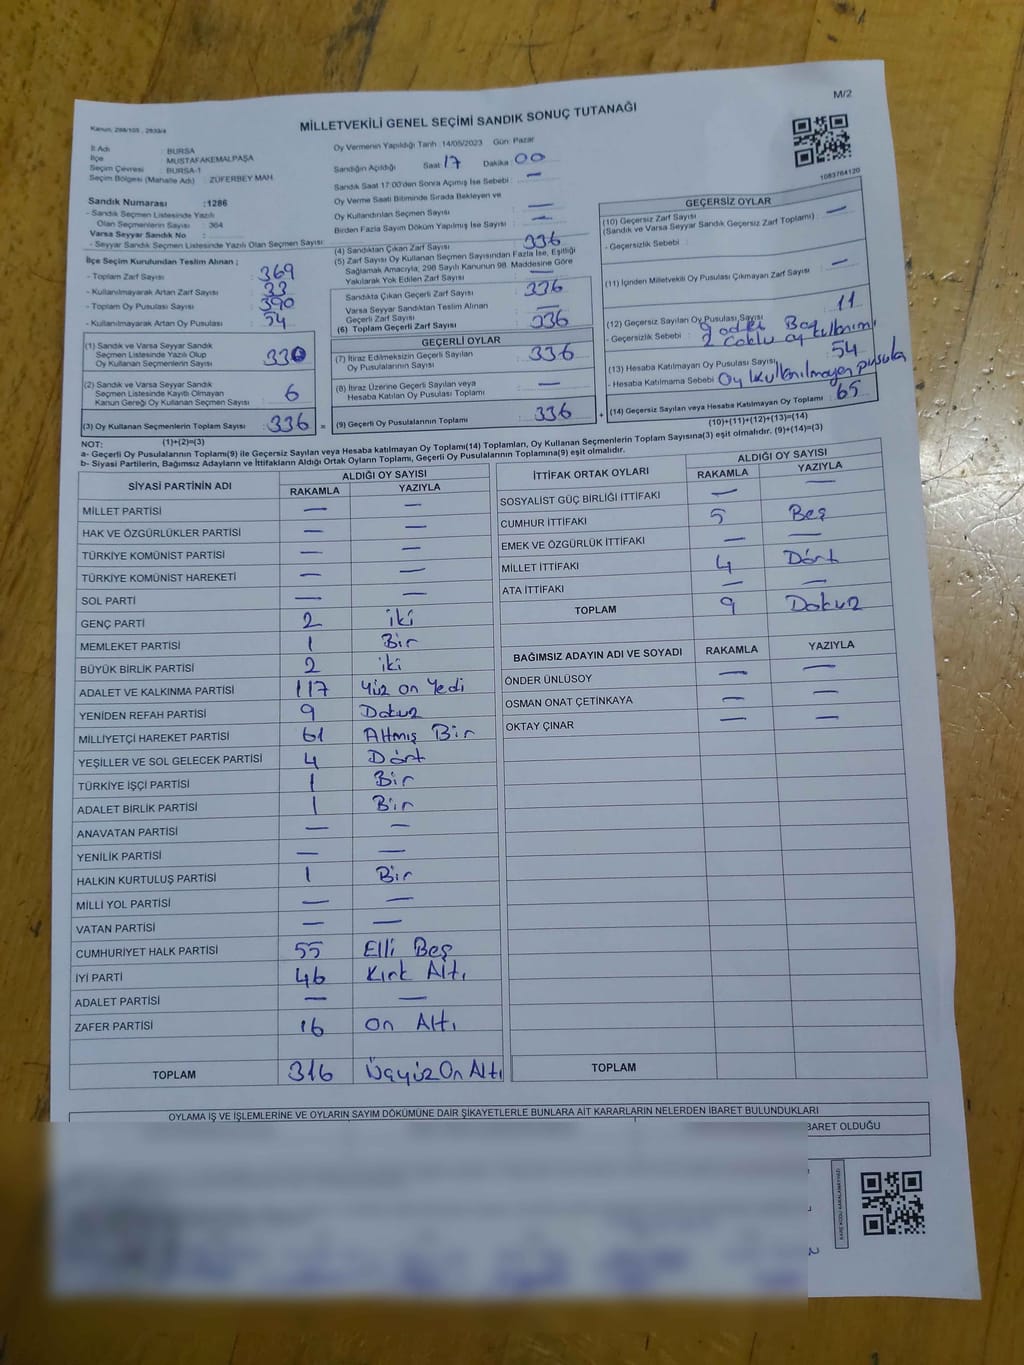 M/2
MİLLETVEKİLİ GENEL SEÇİMİ SANDIK SONUÇ TUTANAĞI
İl Adı : BURSA
İlçe : MUSTAFAKEMALPAŞA
Seçim Çevresi : BURSA-1
Seçim Bölgesi (Mahalle Adı) : ZÜFERBEY MAH.
Sandık Numarası :1286
- Sandık Seçmen Listesinde Yazılı
Olan Seçmenlerin Sayısı : 364
Varsa Seyyar Sandık No :
- Seyyar Sandık Seçmen Listesinde Yazılı Olan Seçmen Sayısı:
İlçe Seçim Kurulundan Teslim Alınan ;
- Toplam Zarf Sayısı : 369
- Kullanılmayarak Artan Zarf Sayısı : 33
- Toplam Oy Pusulası Sayısı : 390
- Kullanılmayarak Artan Oy Pusulası : 54
(1) Sandık ve Varsa Seyyar Sandık
Seçmen Listesinde Yazılı Olup
Oy Kullanan Seçmenlerin Sayısı : 330
(2) Sandık ve Varsa Seyyar Sandık
Seçmen Listesinde Kayıtlı Olmayan
Kanun Gereği Oy Kullanan Seçmen Sayısı : 6
(3) Oy Kullanan Seçmenlerin Toplam Sayısı : 336 =
(1)+(2)=(3)
Oy Vermenin Yapıldığı Tarih :14/05/2023 Gün: Pazar
Sandığın Açıldığı Saat : 17 Dakika : 00
Sandık Saat 17:00'den Sonra Açılmış İse Sebebi : —
Oy Verme Saati Bitiminde Sırada Bekleyen ve
Oy Kullandırılan Seçmen Sayısı : —
Birden Fazla Sayım Döküm Yapılmış İse Sayısı : —
(4) Sandıktan Çıkan Zarf Sayısı : 336
(5) Zarf Sayısı Oy Kullanan Seçmen Sayısından Fazla İse, Eşitliği
Sağlamak Amacıyla, 298 Sayılı Kanunun 98. Maddesine Göre
Yakılarak Yok Edilen Zarf Sayısı : —
Sandıkta Çıkan Geçerli Zarf Sayısı : 336
Varsa Seyyar Sandıktan Teslim Alınan
Geçerli Zarf Sayısı : —
(6) Toplam Geçerli Zarf Sayısı : 336
GEÇERLİ OYLAR
(7) İtiraz Edilmeksizin Geçerli Sayılan
Oy Pusulalarının Sayısı : 336
(8) İtiraz Üzerine Geçerli Sayılan veya
Hesaba Katılan Oy Pusulası Toplamı : —
(9) Geçerli Oy Pusulalarının Toplamı : 336 +
1083764120
GEÇERSİZ OYLAR
(10) Geçersiz Zarf Sayısı : —
(Sandık ve Varsa Seyyar Sandık Geçersiz Zarf Toplamı)
- Geçersizlik Sebebi :
(11) İçinden Milletvekili Oy Pusulası Çıkmayan Zarf Sayısı : —
(12) Geçersiz Sayılan Oy Pusulası Sayısı : 11
- Geçersizlik Sebebi : 9 adet Boş
2 Çoklu oy kullanımı
(13) Hesaba Katılmayan Oy Pusulası Sayısı : 54
- Hesaba Katılmama Sebebi : Oy kullanılmayan pusula
(14) Geçersiz Sayılan veya Hesaba Katılmayan Oy Toplamı : 65
(10)+(11)+(12)+(13)=(14)
NOT:
a- Geçerli Oy Pusulalarının Toplamı(9) ile Geçersiz Sayılan veya Hesaba Katılmayan Oy Toplamı(14) Toplamları, Oy Kullanan Seçmenlerin Toplam Sayısına(3) eşit olmalıdır. (9)+(14)=(3)
b- Siyasi Partilerin, Bağımsız Adayların ve İttifakların Aldığı Ortak Oyların Toplamı, Geçerli Oy Pusulalarının Toplamına(9) eşit olmalıdır.
SİYASİ PARTİNİN ADI ALDIĞI OY SAYISI
RAKAMLA YAZIYLA
MİLLET PARTİSİ — —
HAK VE ÖZGÜRLÜKLER PARTİSİ — —
TÜRKİYE KOMÜNİST PARTİSİ — —
TÜRKİYE KOMÜNİST HAREKETİ — —
SOL PARTİ — —
GENÇ PARTİ 2 iki
MEMLEKET PARTİSİ 1 Bir
BÜYÜK BİRLİK PARTİSİ 2 iki
ADALET VE KALKINMA PARTİSİ 117 Yüz on Yedi
YENİDEN REFAH PARTİSİ 9 Dokuz
MİLLİYETÇİ HAREKET PARTİSİ 61 Altmış Bir
YEŞİLLER VE SOL GELECEK PARTİSİ 4 Dört
TÜRKİYE İŞÇİ PARTİSİ 1 Bir
ADALET BİRLİK PARTİSİ 1 Bir
ANAVATAN PARTİSİ — —
YENİLİK PARTİSİ — —
HALKIN KURTULUŞ PARTİSİ 1 Bir
MİLLİ YOL PARTİSİ — —
VATAN PARTİSİ — —
CUMHURİYET HALK PARTİSİ 55 Elli Beş
İYİ PARTİ 46 Kırk Altı
ADALET PARTİSİ — —
ZAFER PARTİSİ 16 on Altı
TOPLAM 316 Üçyüz On Altı
İTTİFAK ORTAK OYLARI ALDIĞI OY SAYISI
RAKAMLA YAZIYLA
SOSYALİST GÜÇ BİRLİĞİ İTTİFAKI — —
CUMHUR İTTİFAKI 5 Beş
EMEK VE ÖZGÜRLÜK İTTİFAKI — —
MİLLET İTTİFAKI 4 Dört
ATA İTTİFAKI — —
TOPLAM 9 Dokuz
BAĞIMSIZ ADAYIN ADI VE SOYADI RAKAMLA YAZIYLA
ÖNDER ÜNLÜSOY — —
OSMAN ONAT ÇETİNKAYA — —
OKTAY ÇINAR — —
TOPLAM
OYLAMA İŞ VE İŞLEMLERİNE VE OYLARIN SAYIM DÖKÜMÜNE DAİR ŞİKAYETLERLE BUNLARA AİT KARARLARIN NELERDEN İBARET BULUNDUKLARI
BARET OLDUĞU